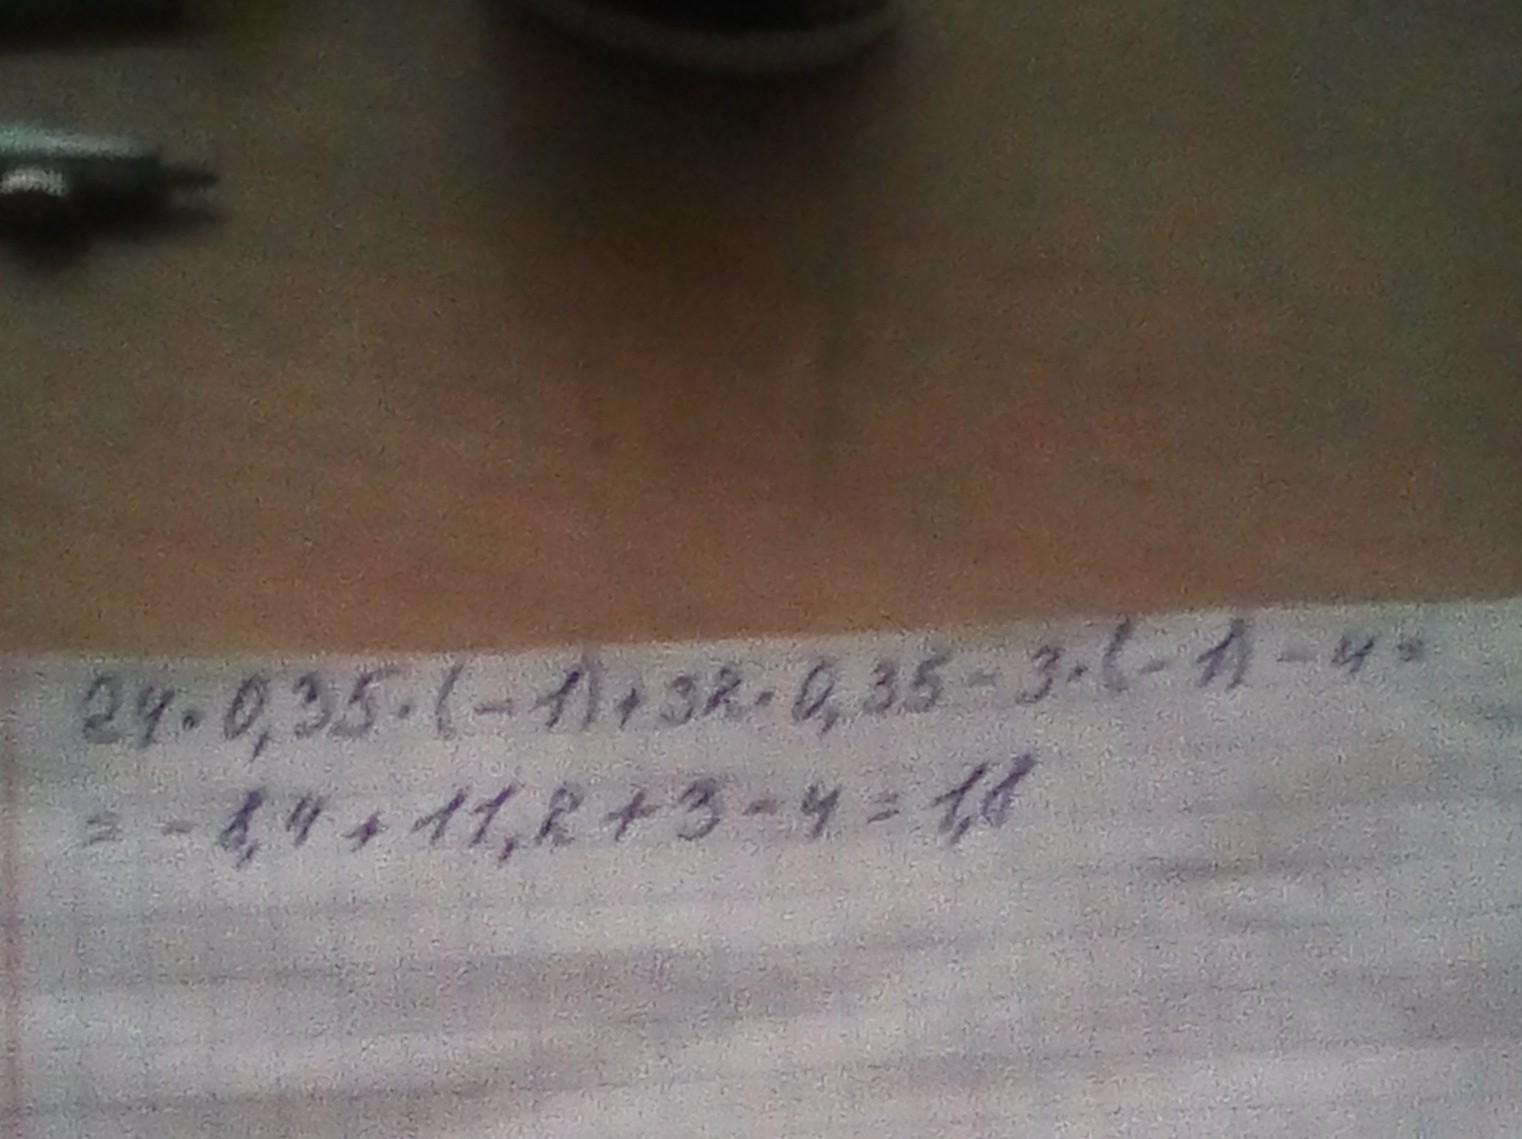 24·0,35·(-1)+32·0,35-3·(-1)-4=
=-8,4+11,2+3-4=1,8